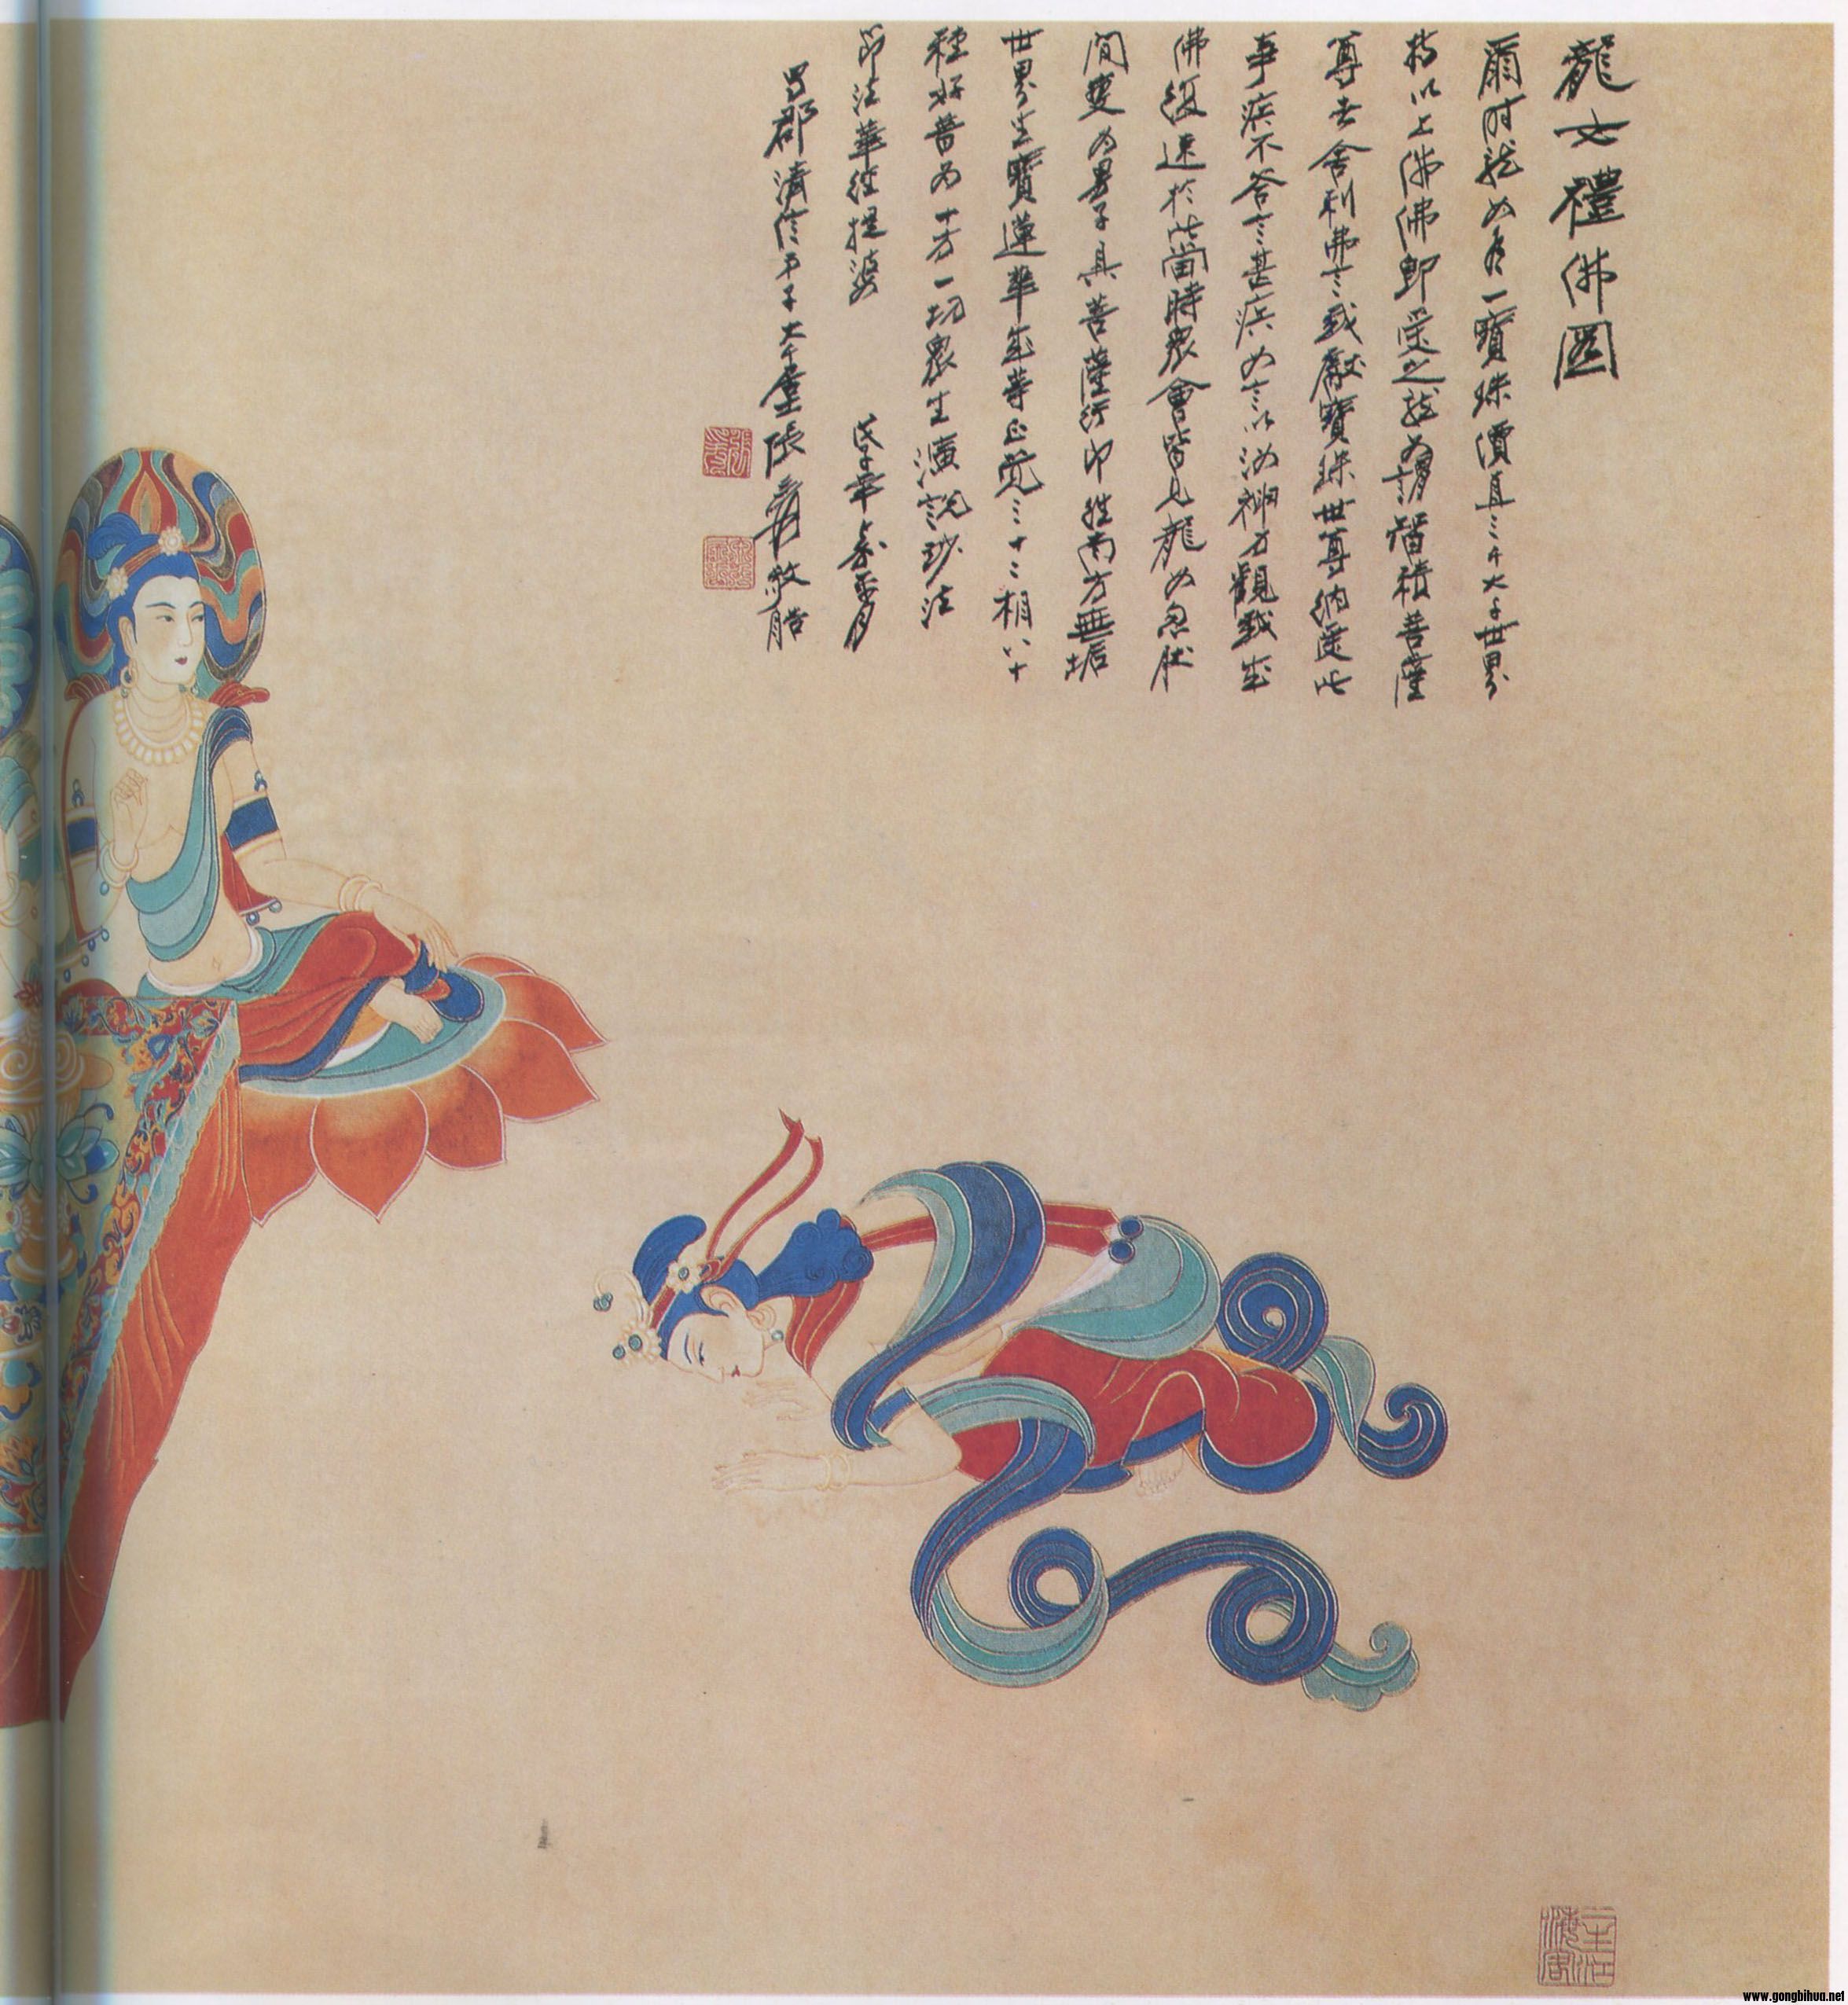 龍女禮佛圖
爾时龍女有一寶珠價直三千大千世界
持以上佛佛即受之龍女謂智積菩薩
尊者舍利弗言我獻寶珠世尊納受此
事疾不答言甚疾女言以汝神力觀我成
佛復速於此當時衆會皆見龍女忽然
間變為男子具菩薩行即往南方無垢
世界坐寶蓮華成等正覺三十二相八十
種好普為十方一切衆生演說妙法
節法華經提婆 戊子 嘉平月
蜀郡清信弟子大千居士張爰敬艁
www.gongbihua.net